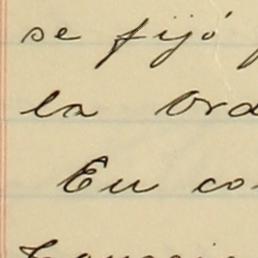 se fijó
la Ord
En co